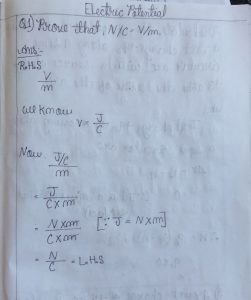 Electric Potential
Q1) Prove that, N/C = V/m.
Ans:-
R.H.S
V
m
we know
V = J
C
Now J/C
m
= J
C × m
= N × m [∵ J = N × m]
C × m
= N = L.H.S
C